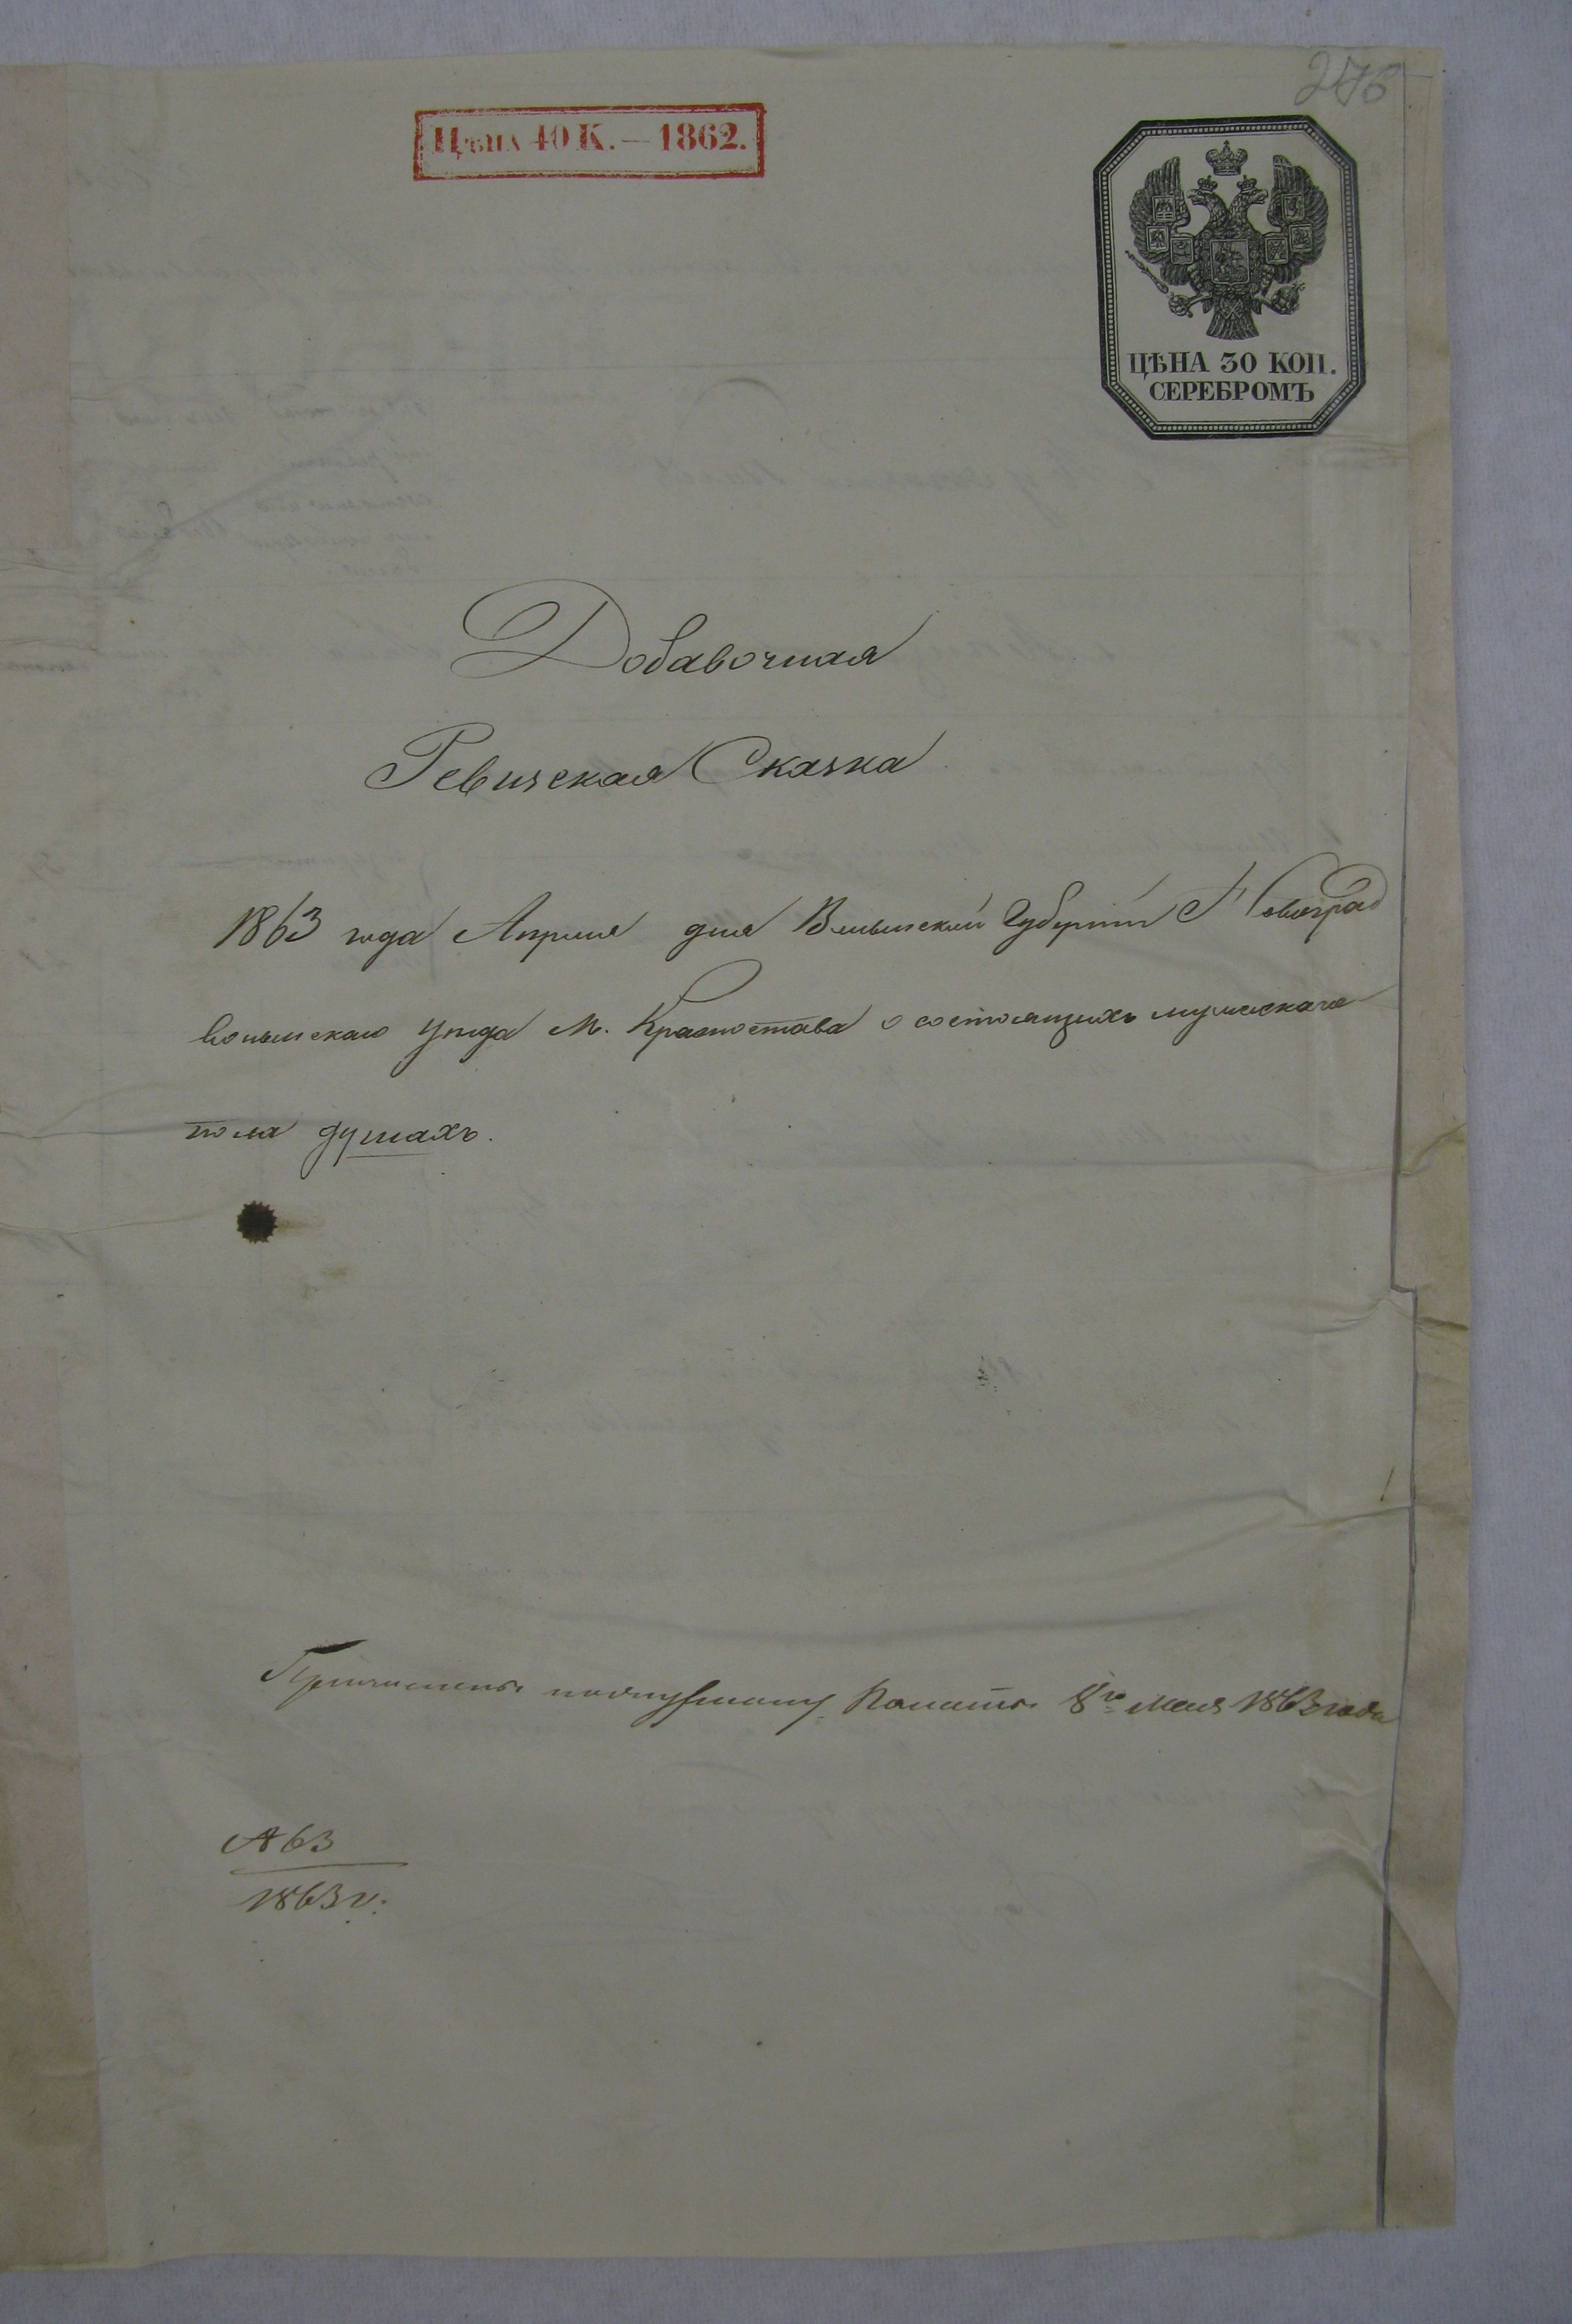 276
Цѣна 40 К. — 1862.
ЦѢНА 30 КОП.
СЕРЕБРОМЪ
Добавочная
Ревизская Сказка
1863 года Апреля дня Волынской Губерніи Новоград
волынскаго уѣзда М. Красностава о состоящихъ мужескаго
пола душахъ.
Палаты 8го Мая 1863 года
63
1863 г: